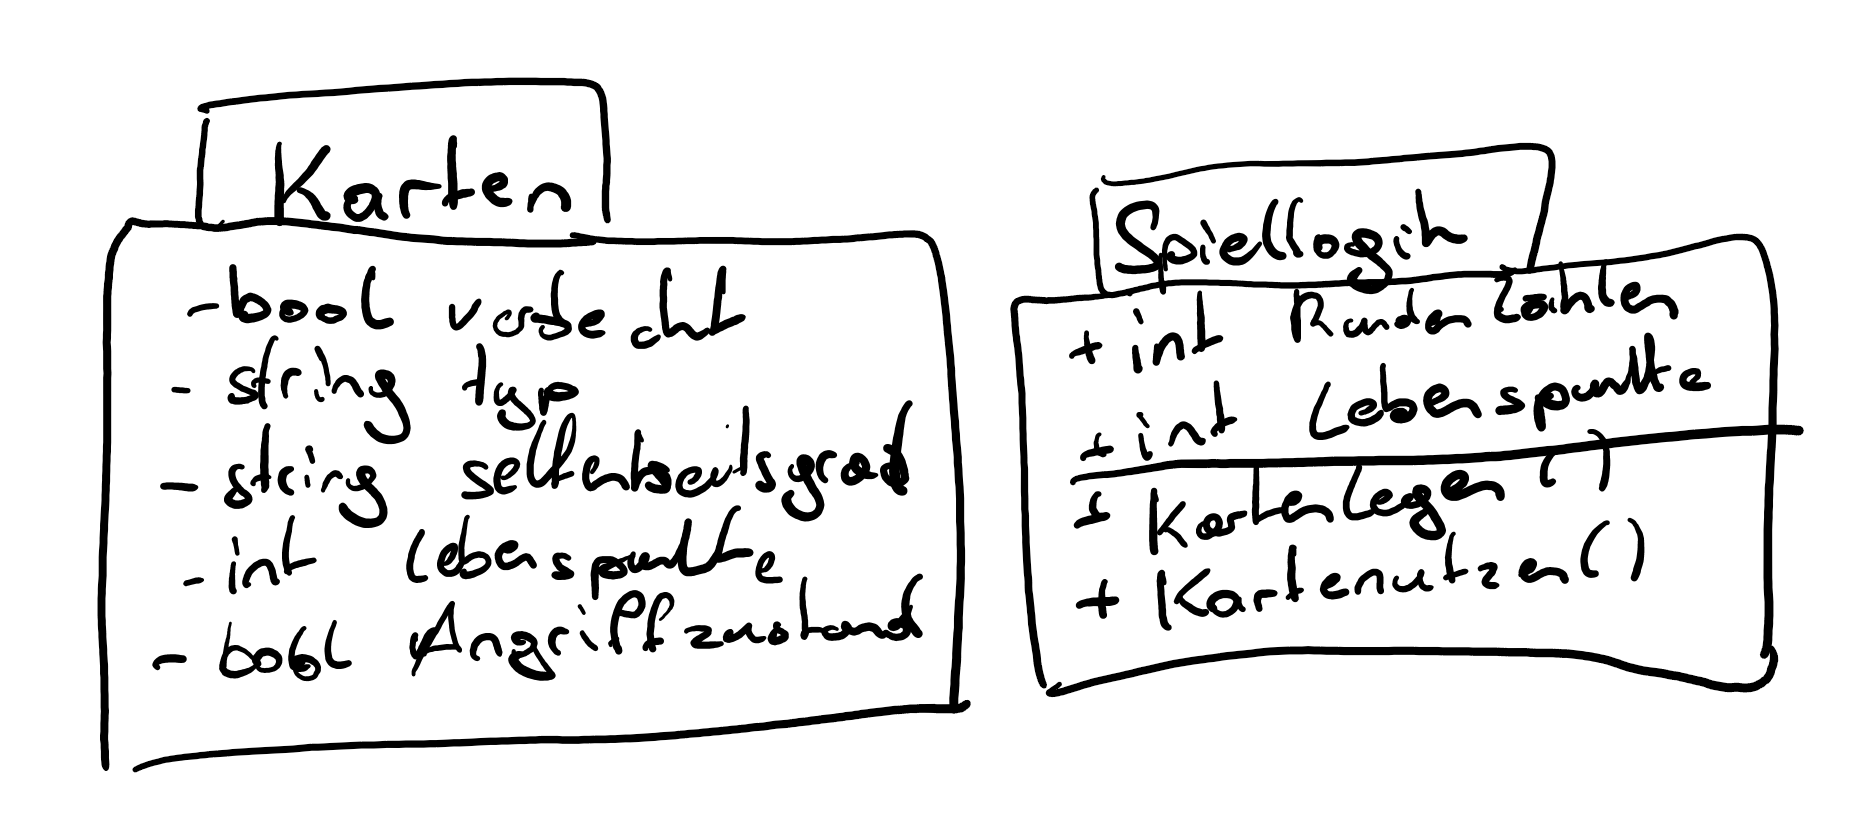 Karten
- bool verdeckt
- string typ
- string seltenheitsgrad
- int Lebenspunkte
- bool Angriffzustand
Spiellogik
+ int Runden zählen
+ int Lebenspunkte
+ Karten legen ()
+ Kartenutzen ()